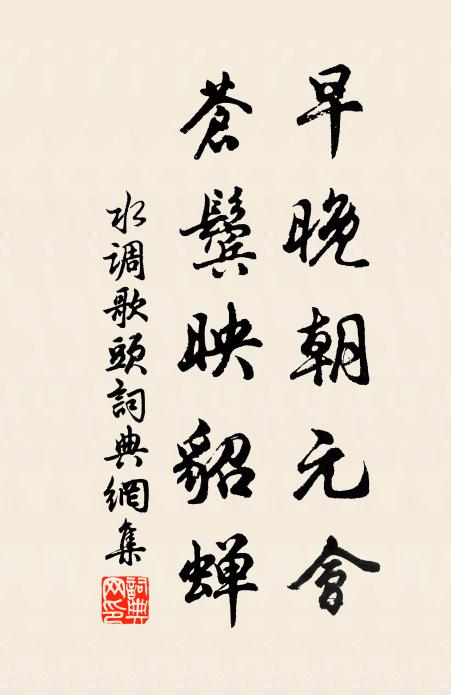 早晚朝元會
蒼鬢映貂蝉
水调歌頭詞典網集
詞典網印